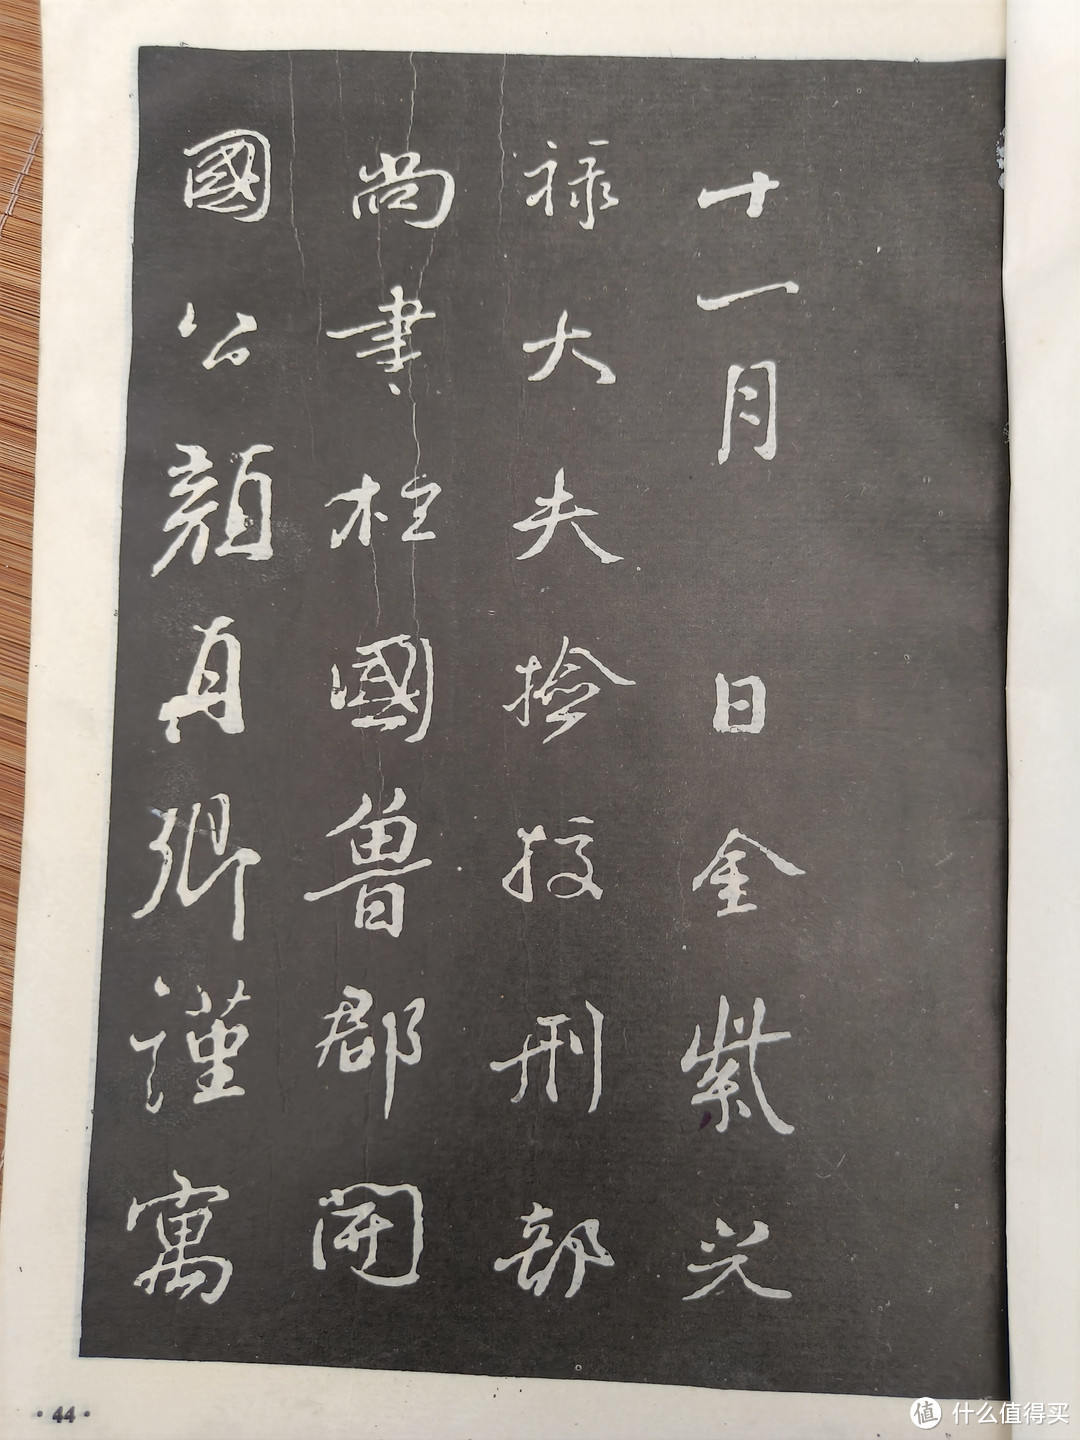 十一月 日金紫光
祿大夫撿挍刑部
尚書柱國魯郡開
國公顏真卿謹寓
·44·
值 什么值得买